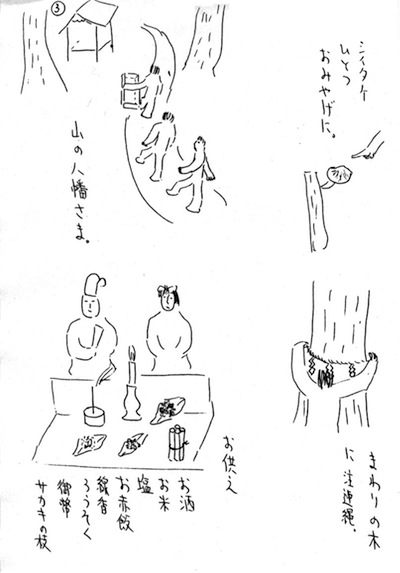 ③
シイタケ
ひとつ
おみやげに。
山の八幡さま。
まわりの木
に注連縄。
お供え
お酒
お米
塩
お赤飯
線香
ろうそく
御幣
サカキの枝